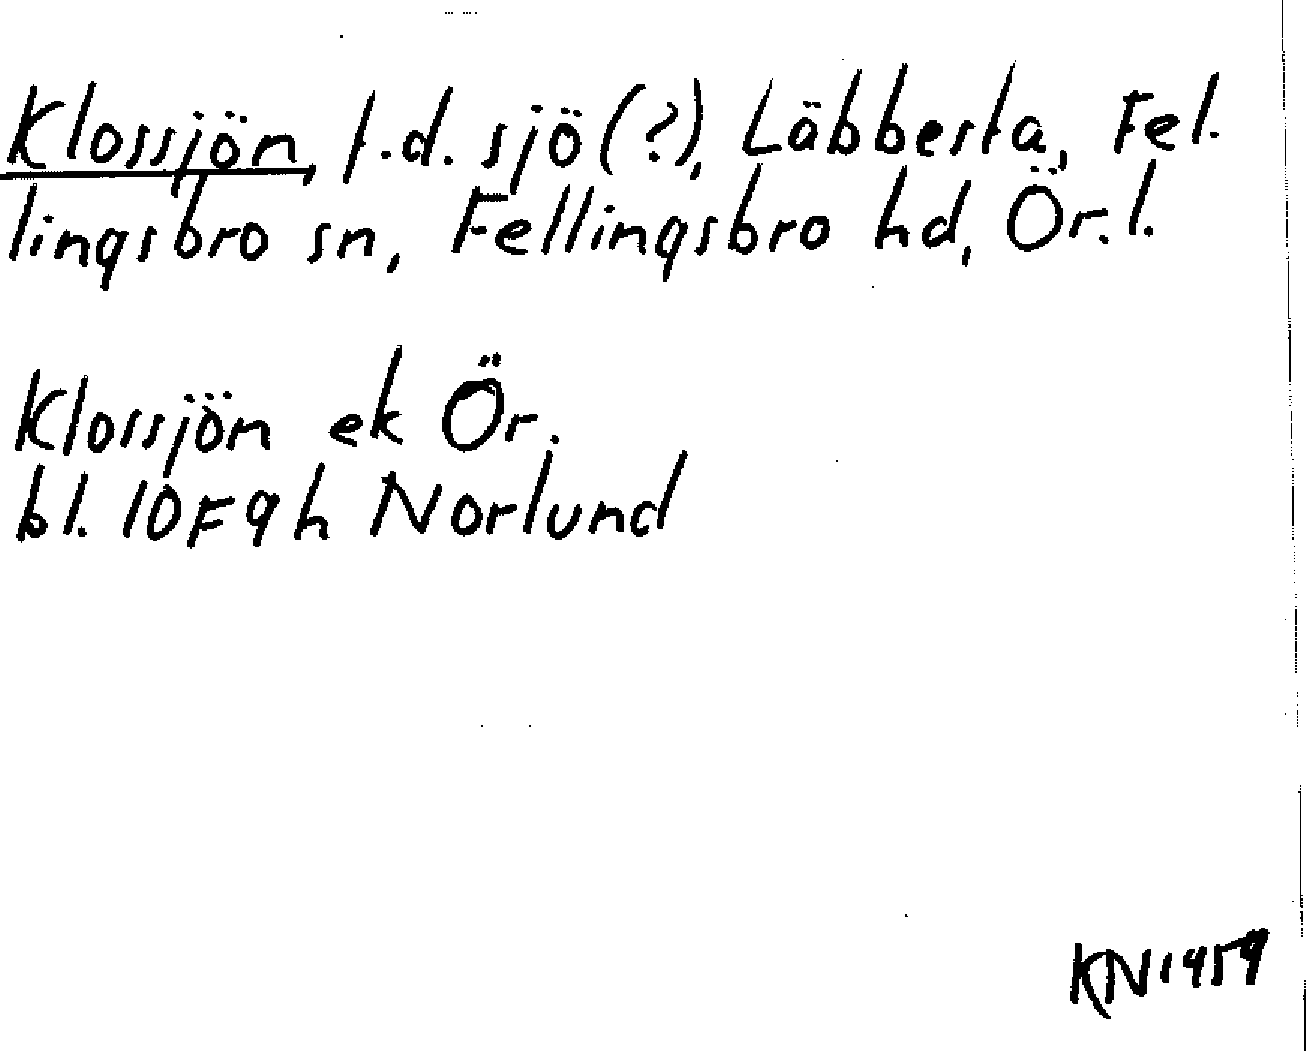 Klossjön, f.d. sjö(?), Läbbesta, Fel-
lingsbro sn, Fellingsbro hd, Ör. l.
Klossjön ek Ör.
bl. 10F9h Norlund
KN 1959